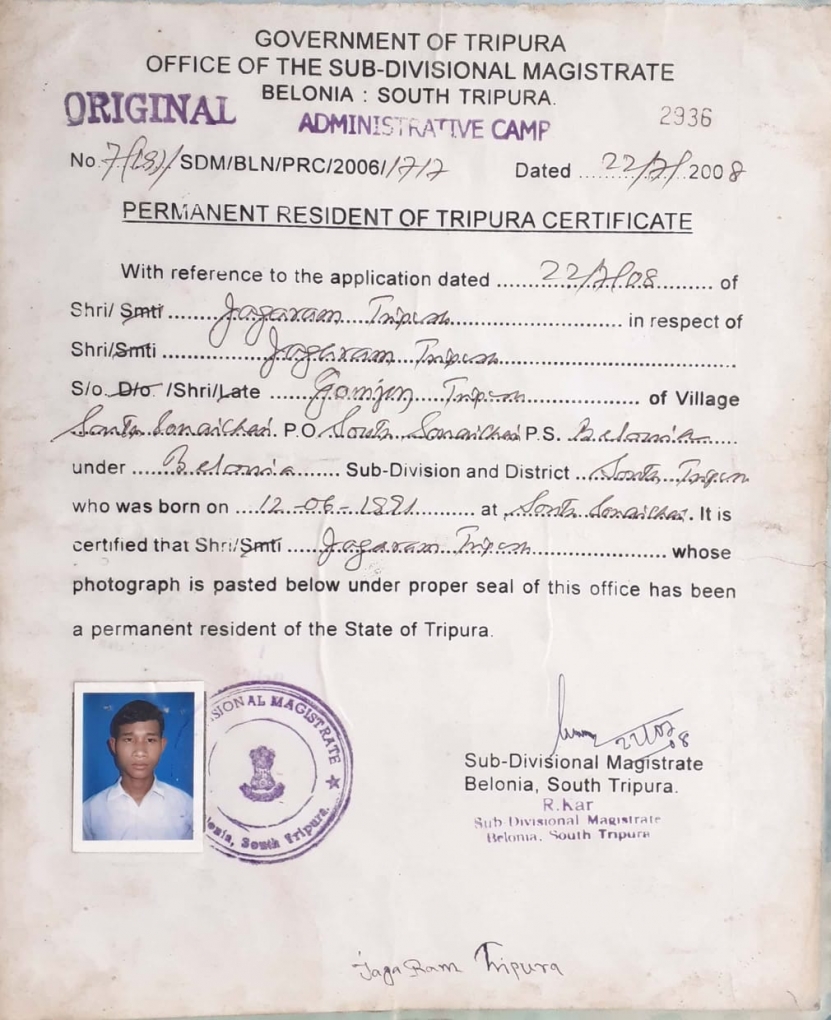 GOVERNMENT OF TRIPURA
OFFICE OF THE SUB-DIVISIONAL MAGISTRATE
BELONIA : SOUTH TRIPURA.
ORIGINAL
ADMINISTRATIVE CAMP
2936
No. 7(18)/SDM/BLN/PRC/2006/1717 Dated ....22/7/.2008
PERMANENT RESIDENT OF TRIPURA CERTIFICATE
With reference to the application dated ......22/7/08......... of
Shri/ Smti ........Jagaram Tripura............................ in respect of
Shri/Smti ................Jagaram Tripura........................................
S/o. D/o. /Shri/Late .... Tripura.................... of Village
South Sonaichari. P.O. South Sonaichari P.S. Belonia.....
under .....Belonia....... Sub-Division and District ...South Tripura
who was born on ....12-06-1991.......... at South Sonaichari. It is
certified that Shri/Smti .....Jagaram Tripura........................ whose
photograph is pasted below under proper seal of this office has been
a permanent resident of the State of Tripura.
SIONAL MAGISTRATE
lonia, South Tripura.
Sub-Divisional Magistrate
Belonia, South Tripura.
R.Kar
Sub-Divisional Magistrate
Belonia, South Tripura
JagaRam Tripura